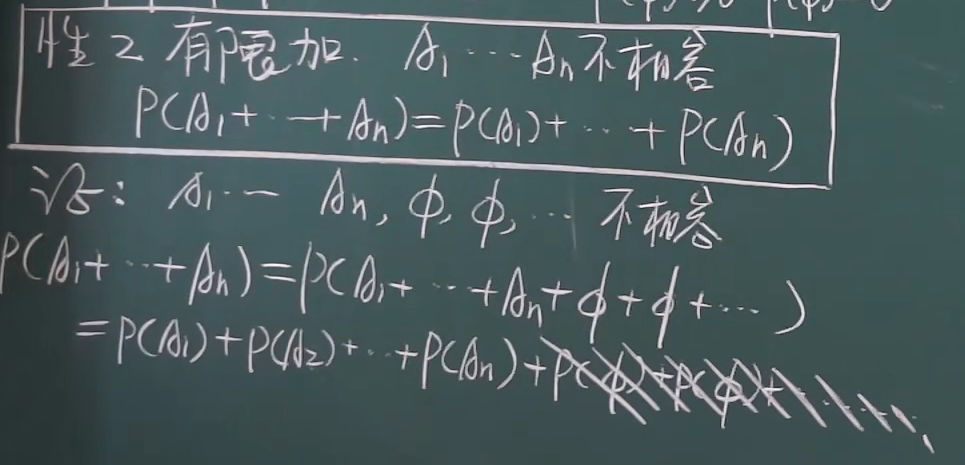 性2 有限加. A₁ ⋯ Aₙ不相容
P(A₁+⋯+Aₙ)=P(A₁)+⋯+P(Aₙ)
证: A₁⋯ Aₙ, φ, φ, ⋯ 不相容
P(A₁+⋯+Aₙ)=P(A₁+⋯+Aₙ+φ+φ+⋯)
=P(A₁)+P(A₂)+⋯+P(Aₙ)+P(φ)+P(φ)+⋯